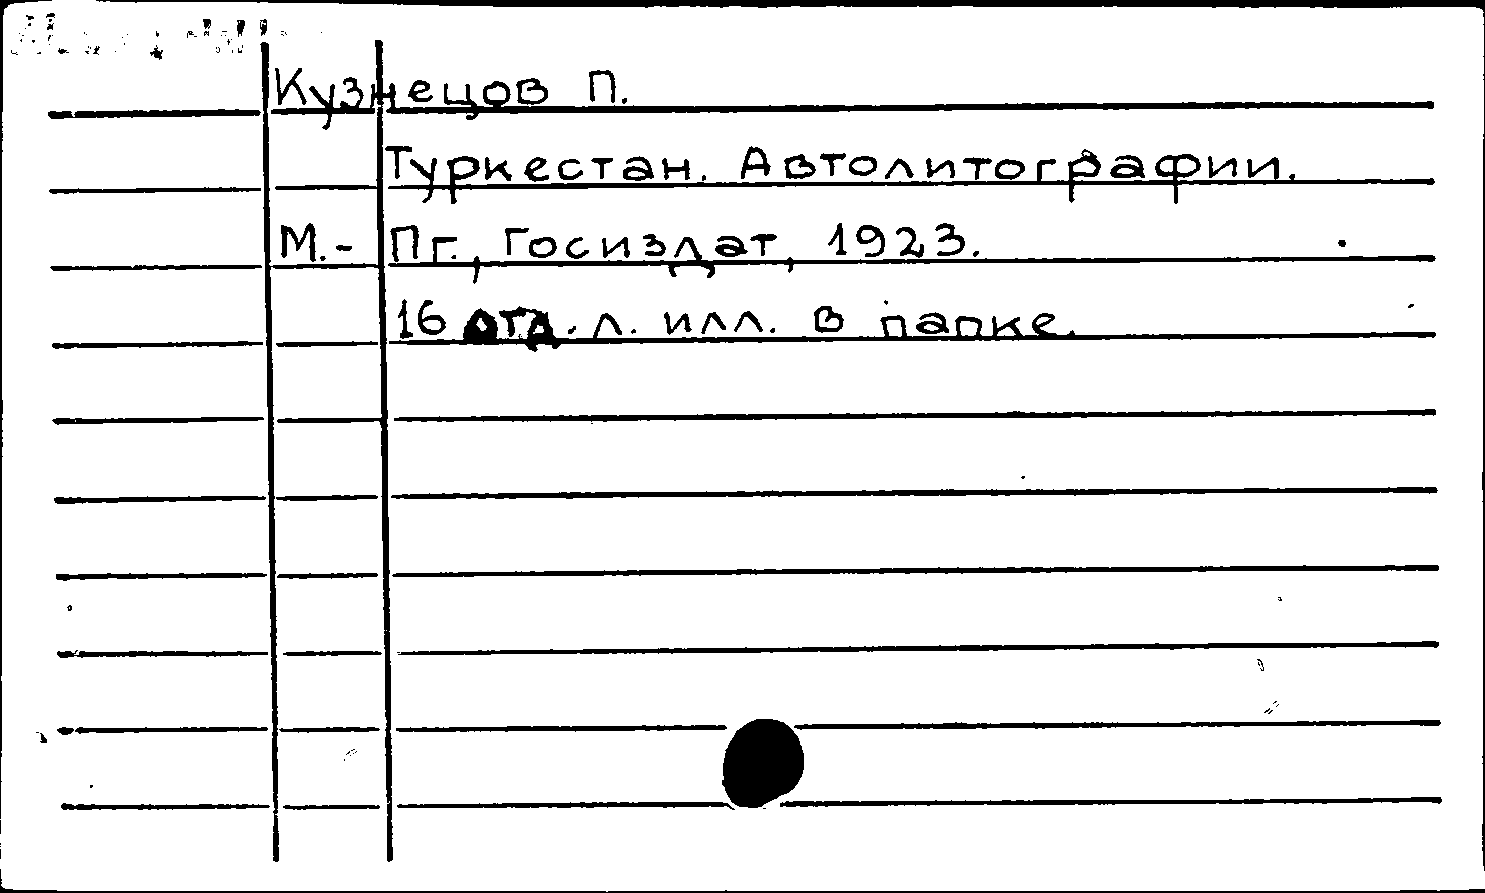 Кузнецов П.
Туркестан. Автолитографии.
М.- Пг., Госиздат, 1923.
16 отд. л. илл. в папке.